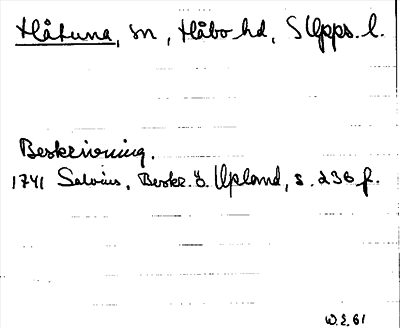 Håtuna, sn, Håbo hd, S Upps. l.
Beskrivning.
1741 Salvius, Beskr. ö. Upland, s. 236 f.
W.E. 61